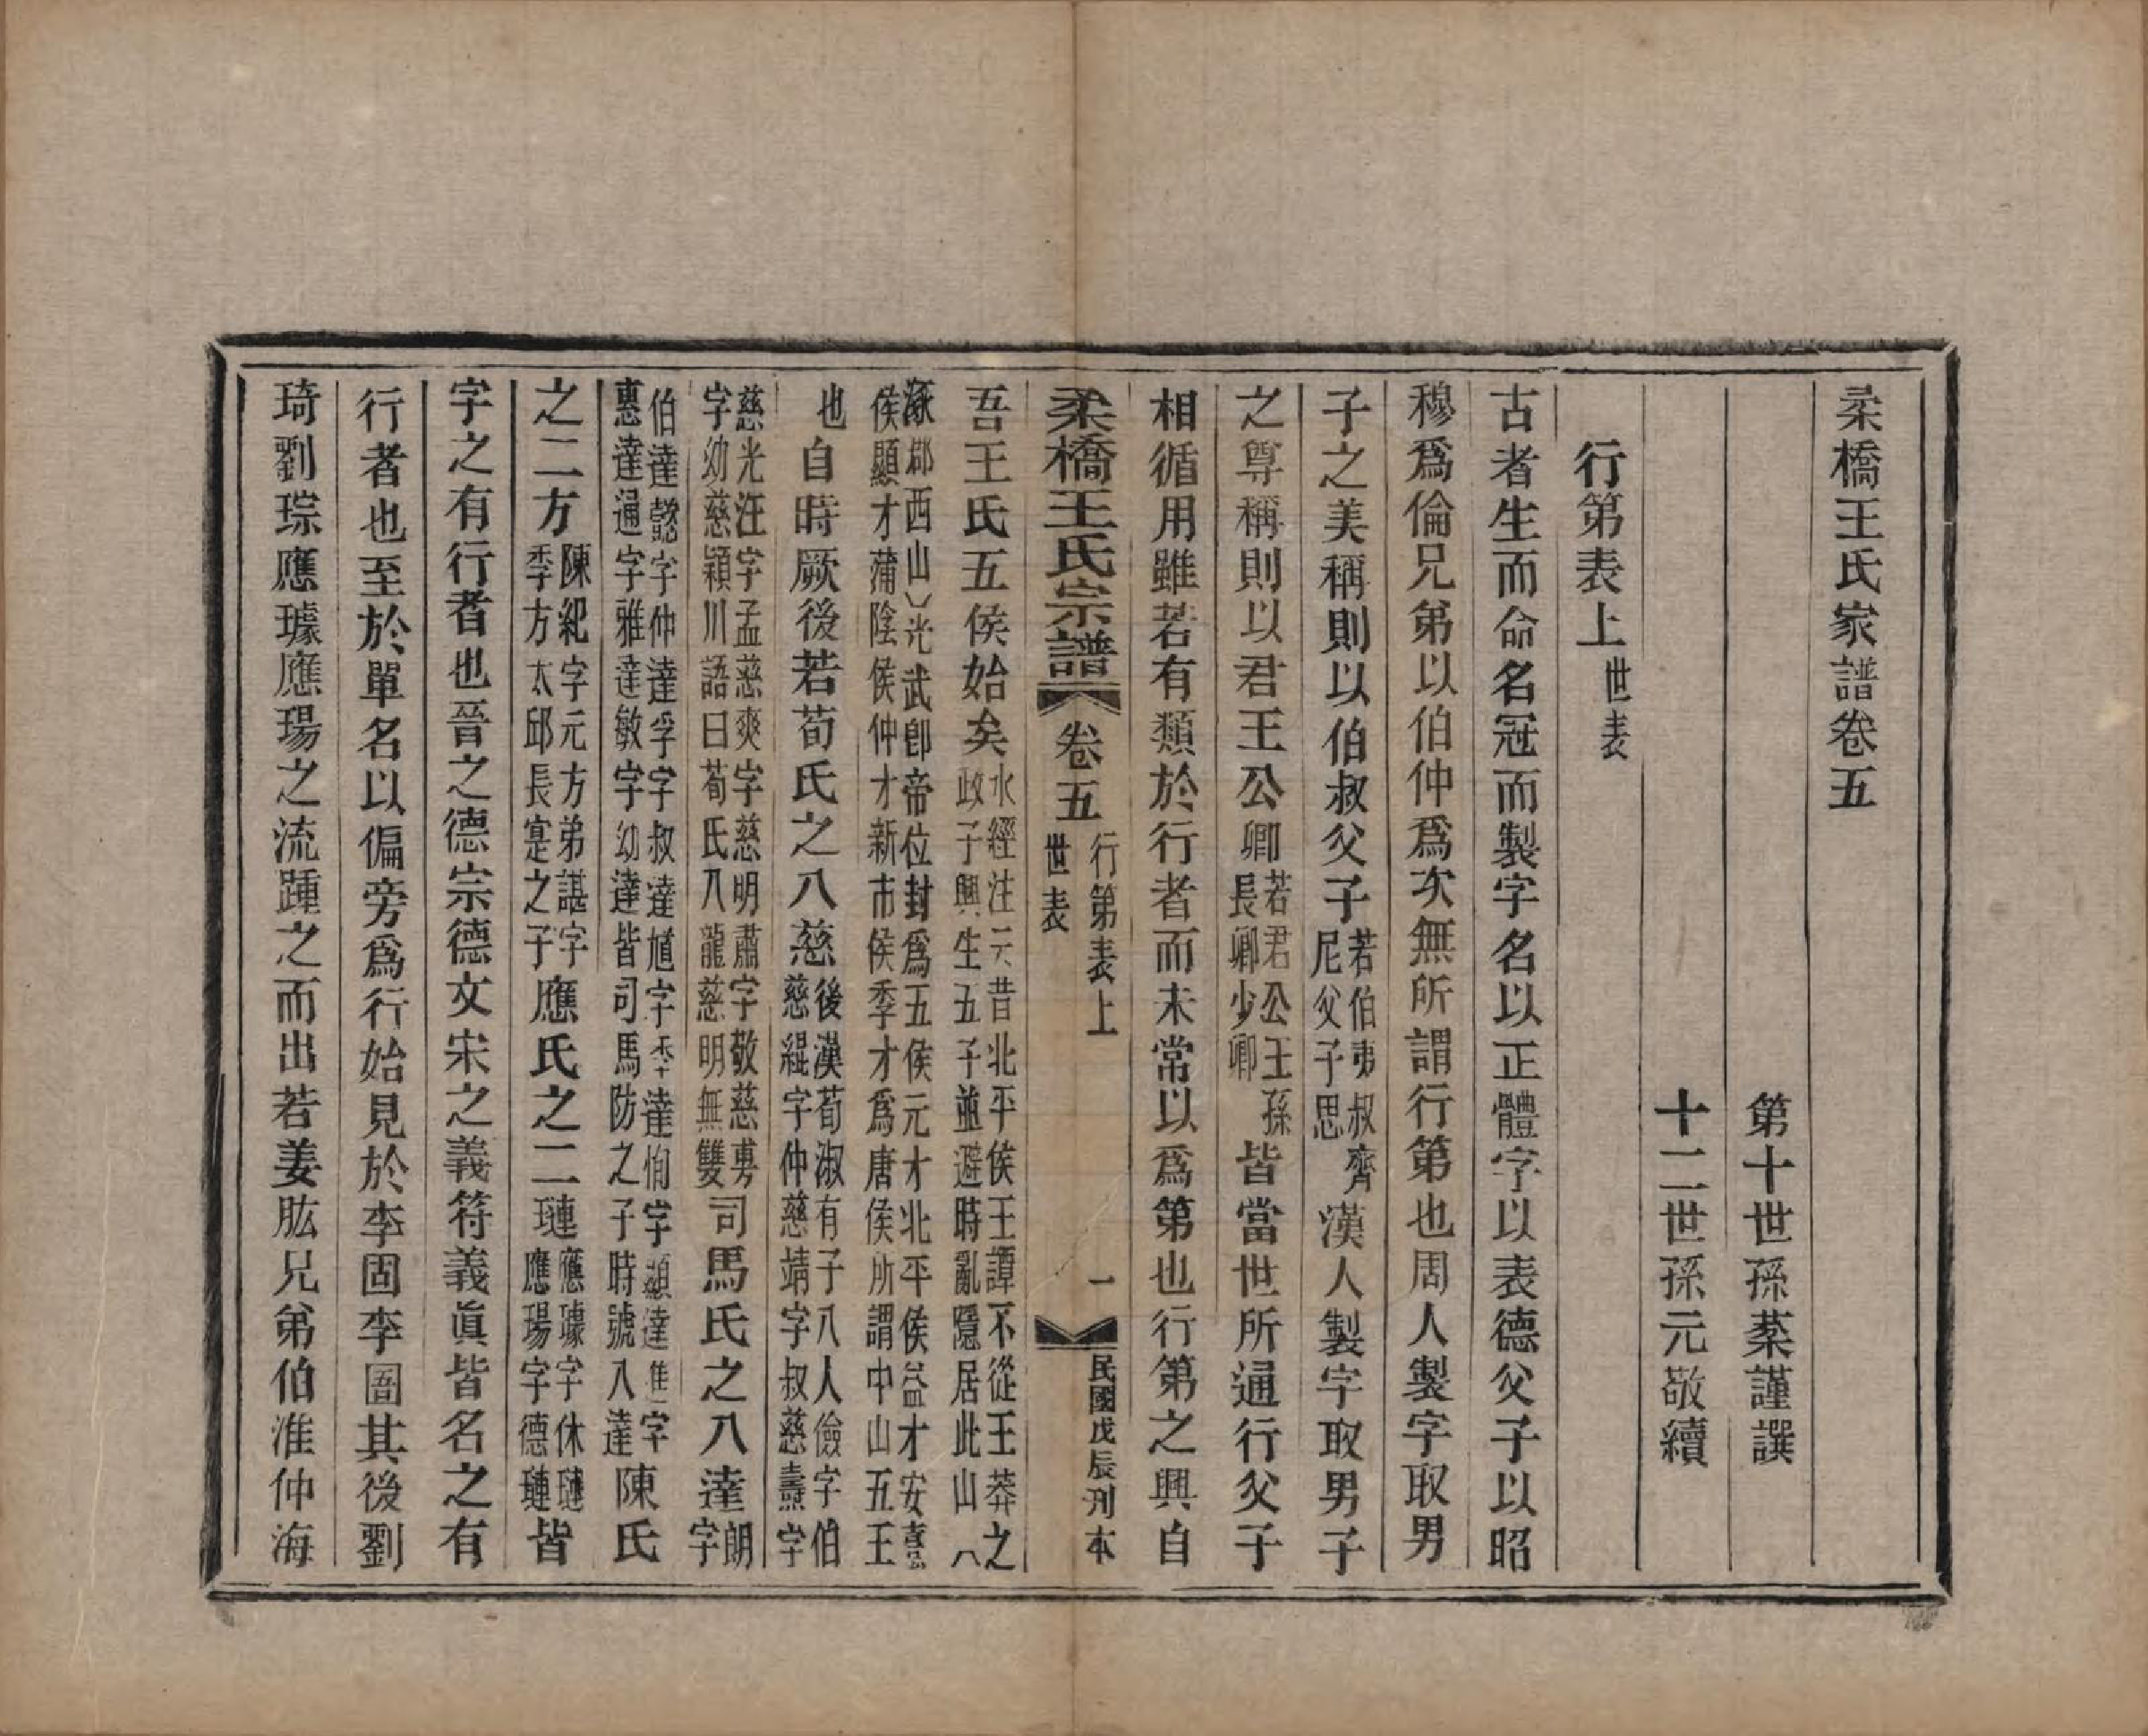 柔橋王氏家譜卷五
第十世孫棻謹譔
十二世孫元敬續
行第表上世表
古者生而命名冠而製字名以正體字以表德父子以昭
穆爲倫兄弟以伯仲爲次無所謂行第也周人製字取男
子之美稱則以伯叔父子若伯夷叔齊尼父子思漢人製字取男子
之尊稱則以君王公卿若君公王孫長卿少卿皆當世所通行父子
相循用雖若有類於行者而未常以爲第也行第之興自
柔橋王氏宗譜 卷五 行第表上世表 一 民國戊辰刋本
吾王氏五侯始矣水經注云昔北平侯王譚不從王莽之政子興生五子並避時亂隱居此山（八
涿郡西山）光武卽帝位封爲五侯元才北平侯益才安憙侯顯才蒲陰侯仲才新市侯季才爲唐侯所謂中山五王
也自時厥後若荀氏之八慈後漢荀淑有子八人儉字伯慈緄字仲慈靖字叔慈燾字
慈光汪字孟慈爽字慈明肅字敬慈旉字幼慈穎川語曰荀氏八龍慈明無雙司馬氏之八達朗字
伯達懿字仲達孚字叔達馗字季達恂字顯達進字惠達通字雅達敏字幼達皆司馬防之子時號八達陳氏
之二方陳紀字元方弟諶字季方太邱長寔之子應氏之二璉應璩字休璉應瑒字德璉皆
字之有行者也晉之德宗德文宋之義符義眞皆名之有
行者也至於單名以偏旁爲行始見於李固李圄其後劉
琦劉琮應璩應瑒之流踵之而出若姜肱兄弟伯淮仲海